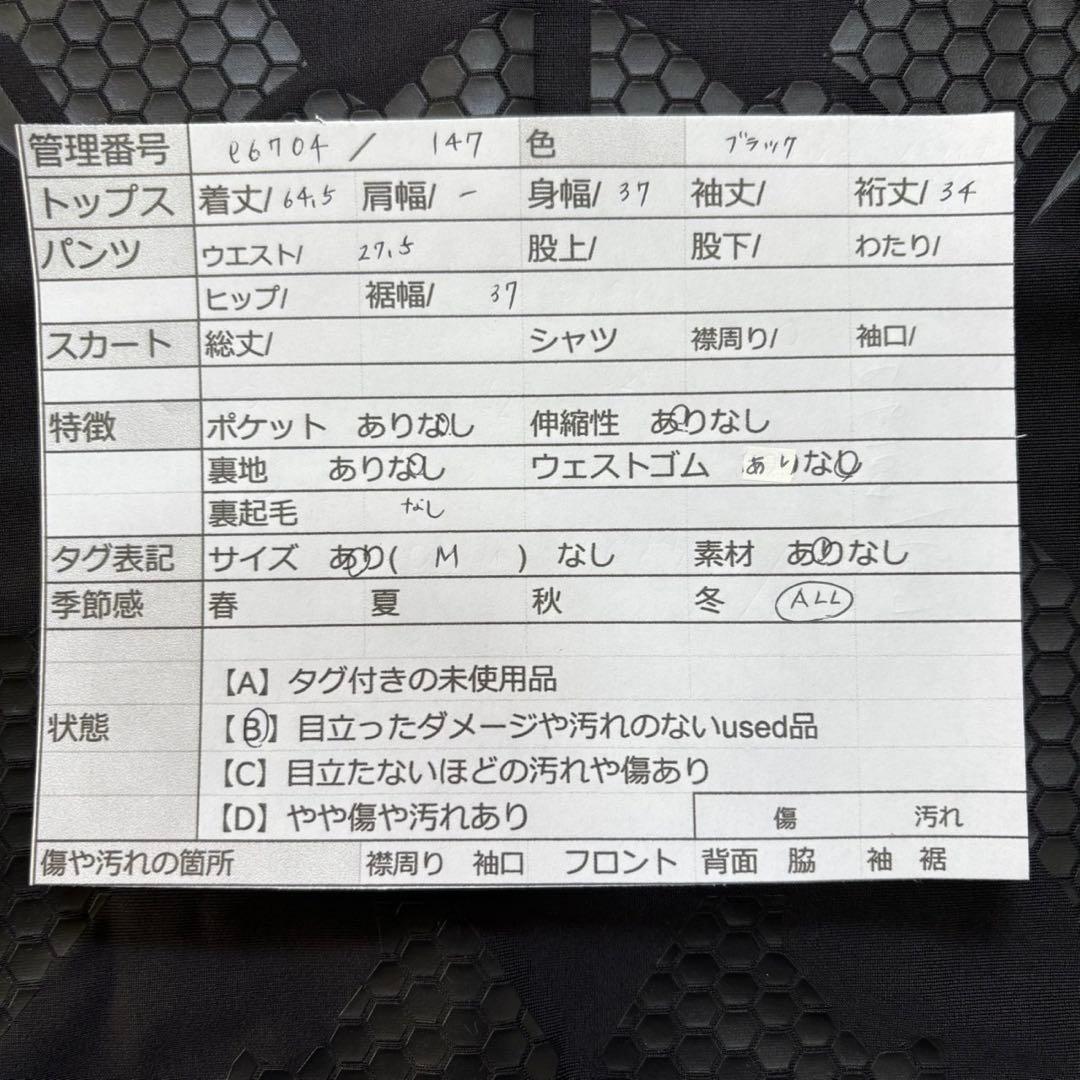 管理番号 e6704 / 147 色 ブラック
トップス 着丈/ 64,5 肩幅/ - 身幅/ 37 袖丈/ 裄丈/ 34
パンツ ウエスト/ 27,5 股上/ 股下/ わたり/
ヒップ/ 裾幅/ 37
スカート 総丈/ シャツ 襟周り/ 袖口/
特徴 ポケット ありなし 伸縮性 ありなし
裏地 ありなし ウェストゴム ありなし
裏起毛 なし
タグ表記 サイズ あり( M ) なし 素材 ありなし
季節感 春 夏 秋 冬 ALL
【A】タグ付きの未使用品
状態 【B】目立ったダメージや汚れのないused品
【C】目立たないほどの汚れや傷あり
【D】やや傷や汚れあり 傷 汚れ
傷や汚れの箇所 襟周り 袖口 フロント 背面 脇 袖 裾